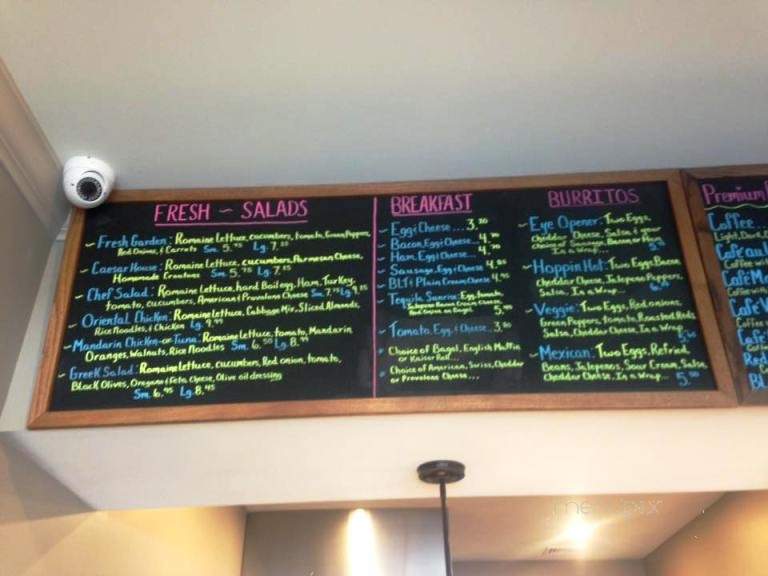 FRESH ~ SALADS
~ Fresh Garden: Romaine Lettuce, cucumbers, tomato, Green Peppers,
Red Onions, & Carrots Sm. 5. Lg. 7.
~ Caesar House: Romaine Lettuce, cucumbers, Parmesan Cheese,
Homemade Croutons Sm. 5. Lg. 7.
~ Chef Salad: Romaine Lettuce, hard Boil egg, Ham, Turkey,
tomato, cucumbers, American & Provolone Cheese Sm 7. Lg 9.
~ Oriental Chicken: Romaine Lettuce, Cabbage Mix, Sliced Almonds,
Rice Noodles, & Chicken Lg. 9.99
~ Mandarin Chicken or Tuna: Romaine Lettuce, tomato, Mandarin
Oranges, Walnuts, Rice Noodles Sm. 6.50 Lg 8.
~ Greek Salad: Romaine Lettuce, cucumber, Red onion, tomato,
Black Olives, Oregano & Feta Cheese, Olive oil dressing
Sm. 6.95 Lg. 8.45
BREAKFAST
~ Egg & Cheese... 3.
~ Bacon, Egg & Cheese... 4.
~ Ham, Egg & Cheese... 4.
~ Sausage, Egg & Cheese 4.
~ BLT & Plain Cream Cheese 4.95
~ Tequila Sunrise: Egg, tomato,
Jalapeno Bacon Cream Cheese,
Red Onion on Bagel. 5.
~ Tomato, Egg & Cheese... 3.
Choice of Bagel, English Muffin
or Kaiser Roll...
Choice of American, Swiss, Cheddar
or Provolone Cheese...
BURRITOS
~ Eye Opener: Two Eggs,
Cheddar Cheese, Salsa & your
choice of Sausage, Bacon, or Ham
In a Wrap...
~ Hoppin Hot: Two Eggs, Bacon
Cheddar Cheese, Jalapeno Peppers,
Salsa. In a Wrap...
~ Veggie: Two Eggs, Red onions,
Green Peppers, tomato, Roasted Reds
Salsa, Cheddar Cheese, In a Wrap...
~ Mexican: Two Eggs, Refried
Beans, Jalapenos, Sour Cream, Salsa,
Cheddar Cheese. In a Wrap... 5.
Premium
Coffee
Light, Dark,
Café
Coffee with
Café
Café
Coffee
Café
Red